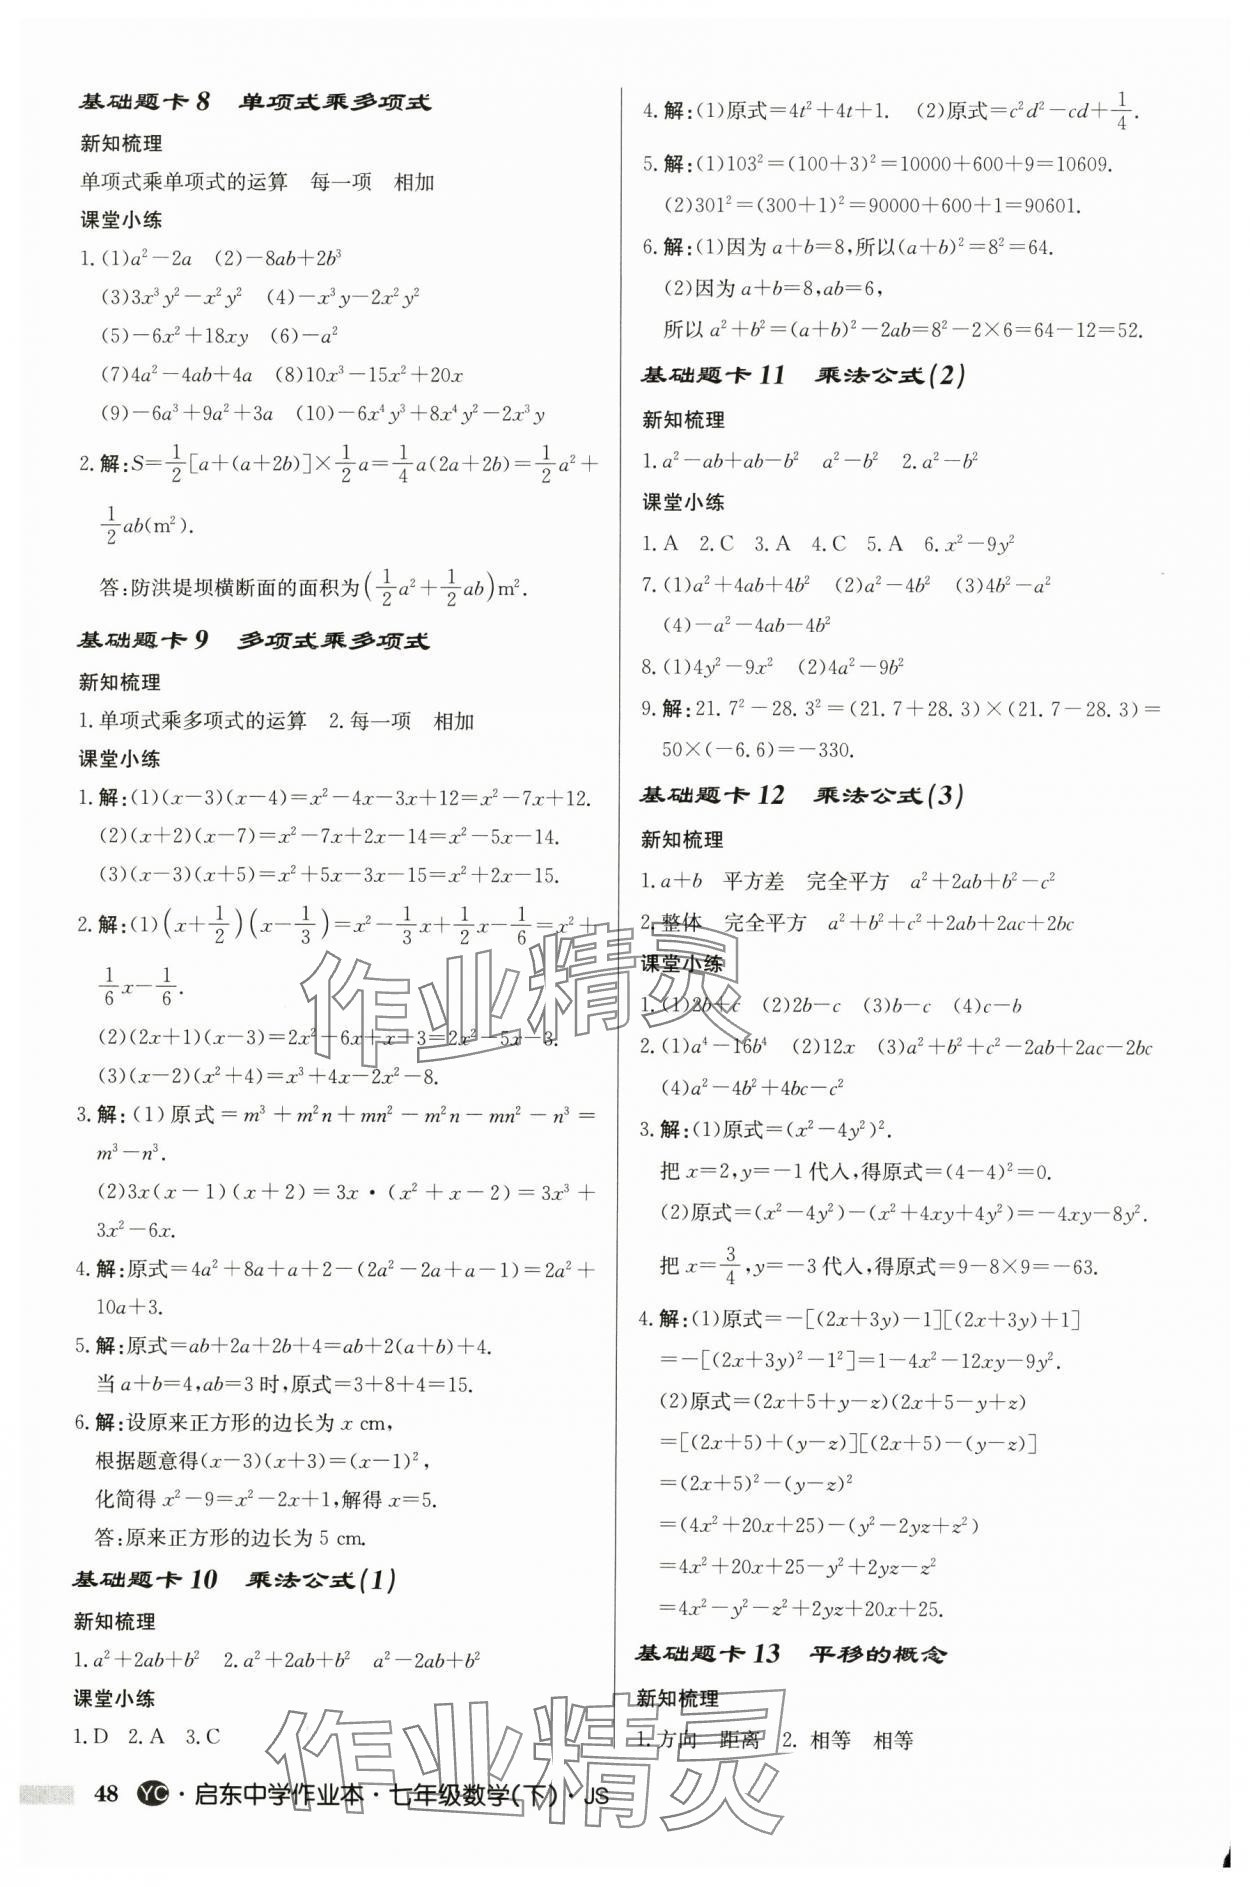 基础题卡8 单项式乘多项式
新知梳理
单项式乘单项式的运算 每一项 相加
课堂小练
1. (1)a²－2a (2)－8ab＋2b³
(3)3x³y²－x²y² (4)－x³y－2x²y²
(5)－6x²＋18xy (6)－a²
(7)4a²－4ab＋4a (8)10x³－15x²＋20x
(9)－6a³＋9a²＋3a (10)－6x⁴y³＋8x⁴y²－2x³y
2. 解:S＝1/2[a＋(a＋2b)]×1/2a＝1/4a(2a＋2b)＝1/2a²＋
1/2ab(m²).
答:防洪堤坝横断面的面积为(1/2a²＋1/2ab)m².
基础题卡9 多项式乘多项式
新知梳理
1. 单项式乘多项式的运算 2. 每一项 相加
课堂小练
1. 解:(1)(x－3)(x－4)＝x²－4x－3x＋12＝x²－7x＋12.
(2)(x＋2)(x－7)＝x²－7x＋2x－14＝x²－5x－14.
(3)(x－3)(x＋5)＝x²＋5x－3x－15＝x²＋2x－15.
2. 解:(1)(x＋1/2)(x－1/3)＝x²－1/3x＋1/2x－1/6＝x²＋
1/6x－1/6.
(2)(2x＋1)(x－3)＝2x²－6x＋x－3＝2x²－5x－3.
(3)(x－2)(x²＋4)＝x³＋4x－2x²－8.
3. 解:(1)原式＝m³＋m²n＋mn²－m²n－mn²－n³＝
m³－n³.
(2)3x(x－1)(x＋2)＝3x·(x²＋x－2)＝3x³＋
3x²－6x.
4. 解:原式＝4a²＋8a＋a＋2－(2a²－2a＋a－1)＝2a²＋
10a＋3.
5. 解:原式＝ab＋2a＋2b＋4＝ab＋2(a＋b)＋4.
当a＋b＝4,ab＝3时,原式＝3＋8＋4＝15.
6. 解:设原来正方形的边长为x cm,
根据题意得(x－3)(x＋3)＝(x－1)²,
化简得x²－9＝x²－2x＋1,解得x＝5.
答:原来正方形的边长为5 cm.
基础题卡10 乘法公式(1)
新知梳理
1. a²＋2ab＋b² 2. a²＋2ab＋b² a²－2ab＋b²
课堂小练
1. D 2. A 3. C
48 YC·启东中学作业本·七年级数学(下)·JS
4. 解:(1)原式＝4t²＋4t＋1. (2)原式＝c²d²－cd＋1/4.
5. 解:(1)103²＝(100＋3)²＝10000＋600＋9＝10609.
(2)301²＝(300＋1)²＝90000＋600＋1＝90601.
6. 解:(1)因为a＋b＝8,所以(a＋b)²＝8²＝64.
(2)因为a＋b＝8,ab＝6,
所以a²＋b²＝(a＋b)²－2ab＝8²－2×6＝64－12＝52.
基础题卡11 乘法公式(2)
新知梳理
1. a²－ab＋ab－b² a²－b² 2. a²－b²
课堂小练
1. A 2. C 3. A 4. C 5. A 6. x²－9y²
7. (1)a²＋4ab＋4b² (2)a²－4b² (3)4b²－a²
(4)－a²－4ab－4b²
8. (1)4y²－9x² (2)4a²－9b²
9. 解:21.7²－28.3²＝(21.7＋28.3)×(21.7－28.3)＝
50×(－6.6)＝－330.
基础题卡12 乘法公式(3)
新知梳理
1. a＋b 平方差 完全平方 a²＋2ab＋b²－c²
2. 整体 完全平方 a²＋b²＋c²＋2ab＋2ac＋2bc
课堂小练
1. (1)2b＋c (2)2b－c (3)b－c (4)c－b
2. (1)a⁴－16b⁴ (2)12x (3)a²＋b²＋c²－2ab＋2ac－2bc
(4)a²－4b²＋4bc－c²
3. 解:(1)原式＝(x²－4y²)².
把x＝2,y＝－1代入,得原式＝(4－4)²＝0.
(2)原式＝(x²－4y²)－(x²＋4xy＋4y²)＝－4xy－8y².
把x＝3/4,y＝－3代入,得原式＝9－8×9＝－63.
4. 解:(1)原式＝－[(2x＋3y)－1][(2x＋3y)＋1]
＝－[(2x＋3y)²－1²]＝1－4x²－12xy－9y².
(2)原式＝(2x＋5＋y－z)(2x＋5－y＋z)
＝[(2x＋5)＋(y－z)][(2x＋5)－(y－z)]
＝(2x＋5)²－(y－z)²
＝(4x²＋20x＋25)－(y²－2yz＋z²)
＝4x²＋20x＋25－y²＋2yz－z²
＝4x²－y²－z²＋2yz＋20x＋25.
基础题卡13 平移的概念
新知梳理
1. 方向 距离 2. 相等 相等
作业精灵
作业精灵